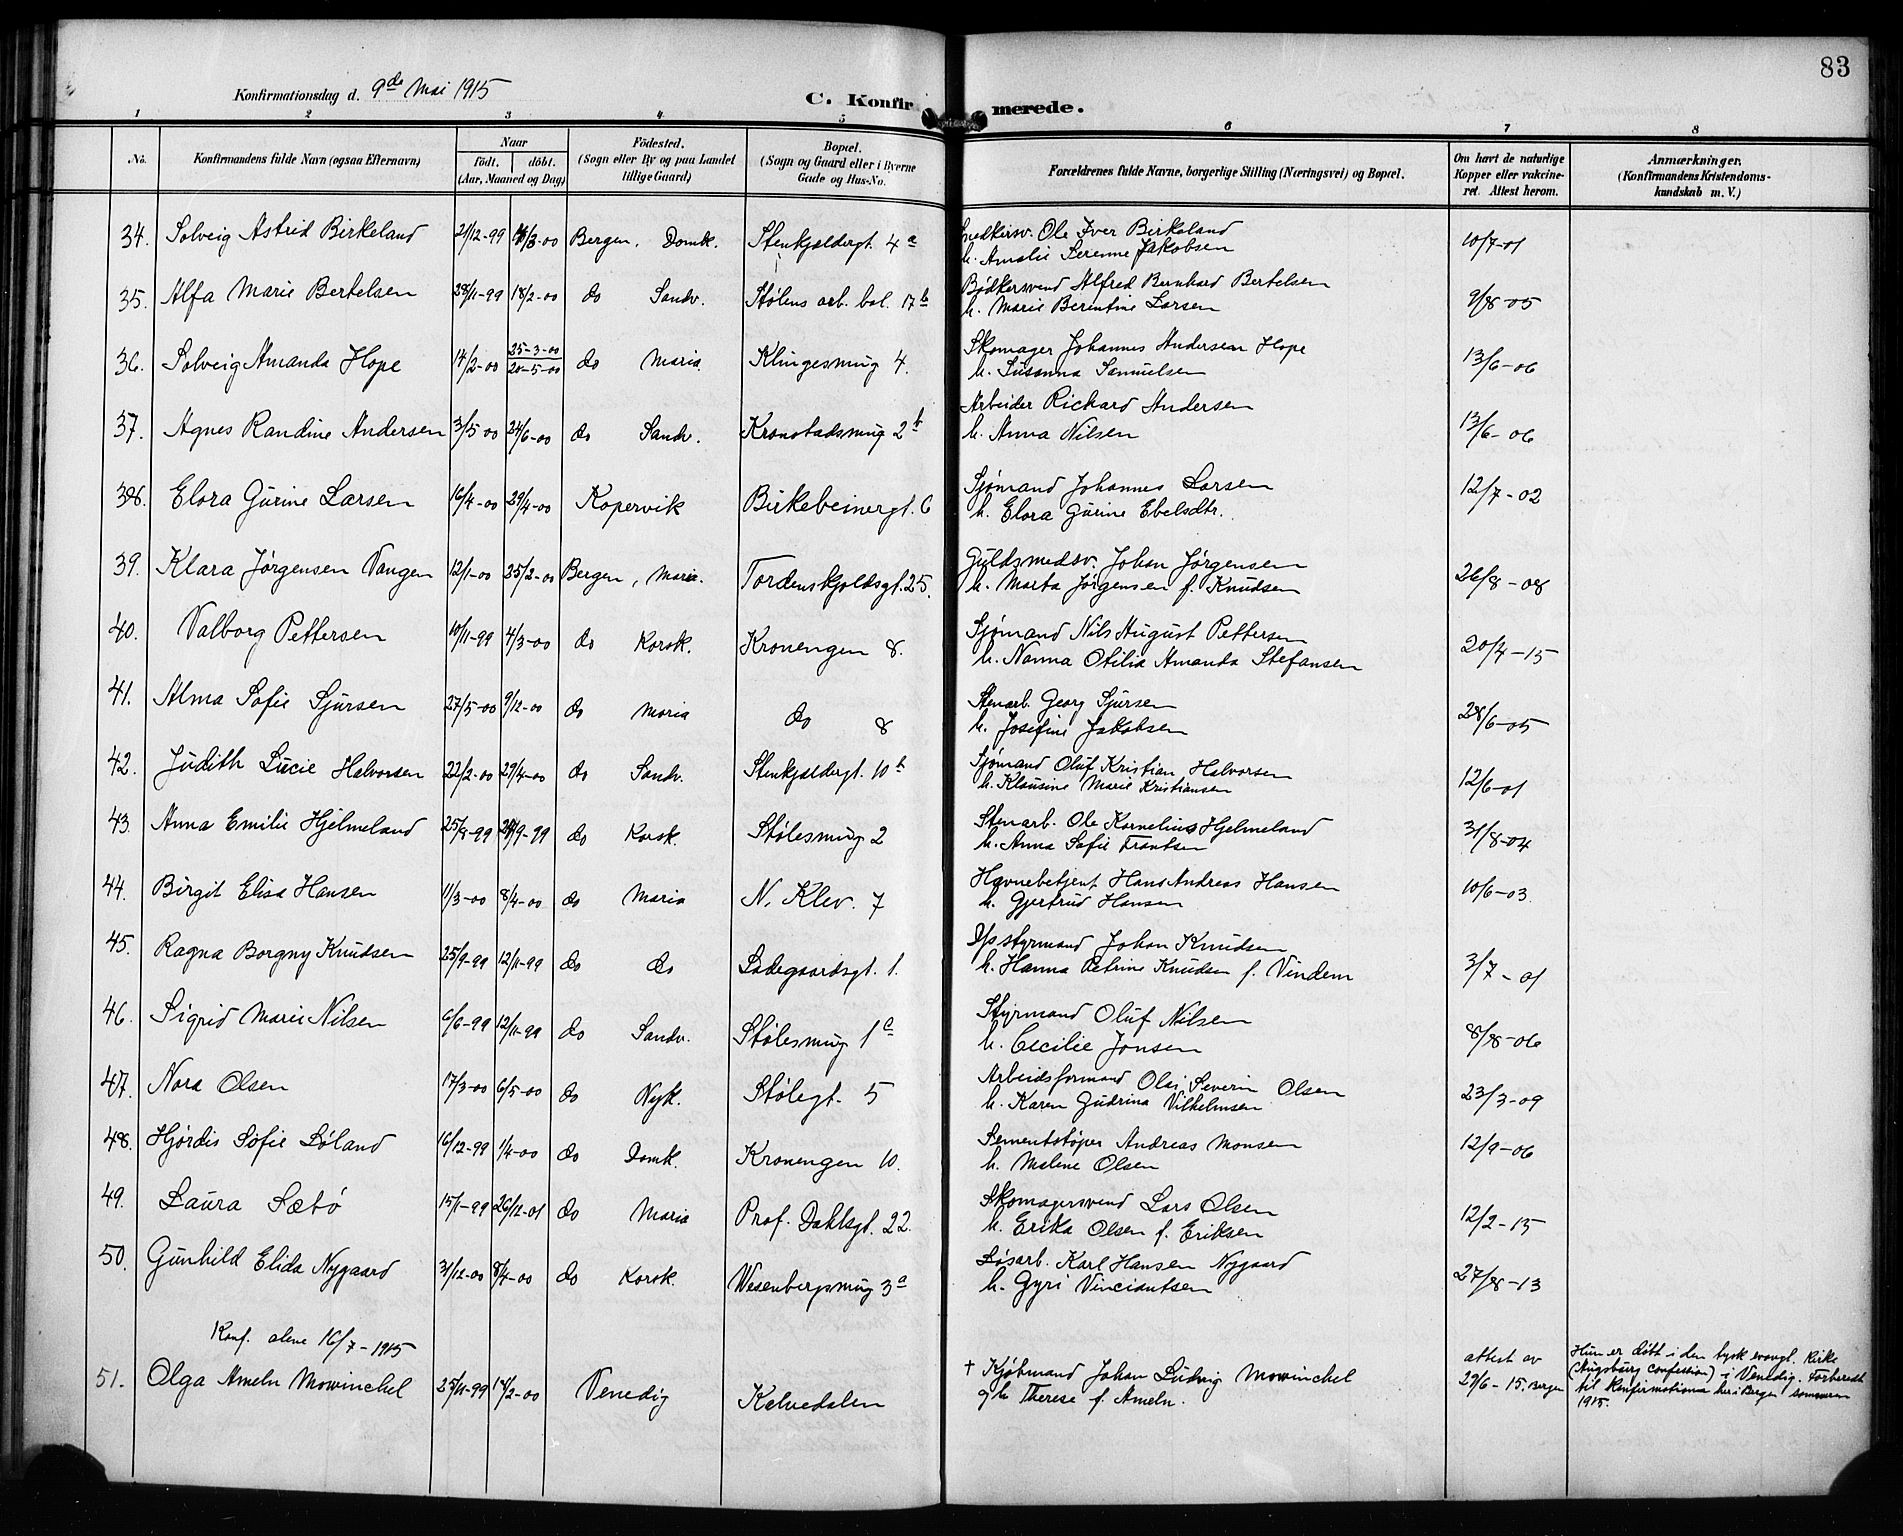 83
Konfirmationsdag d. 9de Mai 1915
C. Konfirmerede.
1 2 3 4 5 6 7 8
No. Konfirmandens fulde Navn (ogsaa Efternavn) Naar født. døbt. (Aar, Maaned og Dag) Fødested. (Sogn eller By og paa Landet tillige Gaard) Bopæl. (Sogn og Gaard eller i Byerne Gade og Hus-No. Forældrenes fulde Navne, borgerlige Stilling (Næringsvei) og Bopæl. Om havt de naturlige Kopper eller vakcineret. Attest herom. Anmærkninger. (Konfirmandens Kristendomskundskab m. V.)
34. Solveig Astrid Birkeland 21/12-99 /3-00 Bergen, Domk. Stenkjældergt. 4a Snedkersv. Ole Iver Birkeland 10/7-01
h. Amalie Serenne Jakobsen
35. Alfa Marie Bertelsen 28/11-99 18/2-00 do Sandv. Stølens arb. bol. 17b Bødkersvend Alfred Bernhard Bertelsen 9/8-05
h. Marie Berentine Larsen
36. Solveig Amanda Hope 14/2-00 25-3-00 20-5-00 do Maria Klingesmug 4. Skomager Johannes Andersen Hope 13/6-06
h. Susanna Samuelsen
37. Agnes Randine Andersen 3/5 00 24/6-00 do Sandv. Kronstadsmug 2b Arbeider Rickard Andersen 13/6-06
h. Anna Nilsen
38. Elora Gurine Larsen 16/4-00 29/4-00 Kopervik Birkebeinergt. 6 Sjømand Johannes Larsen 12/7-02
h. Elora Gurine Ebelsdtr.
39. Klara Jørgensen Vangen 12/1-00 25/2-00 Bergen, Maria. Tordenskjoldsgt. 25. Guldsmedsv. Johan Jørgensen 26/8-08
h. Marta Jørgensen f. Knudsen
40. Valborg Pettersen 10/11-99 4/3-00 do Korsk. Kronengen 8. Sjømand Nils August Pettersen 20/4-15
h. Nanna Otilia Amanda Stefansen
41. Alma Sofie Sjursen 27/5-00 9/12-00 do Maria do 8 Stenarb. Georg Sjursen 28/6-05
h. Josefine Jakobsen
42. Judith Lucie Halvorsen 22/2-00 29/4-00 do Sandv. Stenkjældergt. 10b Sjømand Oluf Kristian Halvorsen 12/6-01
h. Klausine Marie Kristiansen
43. Anna Emilie Hjelmeland 25/8-99 24/9-99 do Korsk. Stølesmug 2 Stenarb. Ole Kornelius Hjelmeland 31/8-04
h. Anna Sofie Frantsen
44. Birgit Elisa Hansen 11/3-00 8/4-00 do Maria N. Klev. 7 Havnebetjent Hans Andreas Hansen 10/6-03
h. Gjertrud Hansen
45. Ragna Borgny Knudsen 25/9-99 12/11-99 do do Ladegaardsgt. 1. D/s styrmand Johan Knudsen 3/7-01
h. Hanna Petrine Knudsen f. Vindem
46. Sigrid Marie Nilsen 6/6-99 12/11-99 do Sandv. Stølesmug 1c Styrmand Oluf Nilsen 8/8-06
h. Cecilie Jonsen
47. Nora Olsen 17/3-00 6/5-00 do Nyk. Stølegt. 5 Arbeidsformand Olai Severin Olsen 23/3-09
h. Karen Gudrina Vilhelmsen
48. Hjørdis Sofie Løland 16/12-99 1/4-00 do Domk. Kronengen 10. Sementstøper Andreas Monsen 12/9-06
h. Malene Olsen
49. Laura Sæbø 15/1-99 26/12-01 do Maria Prof. Dahlsgt. 22. Skomagersvend Lars Olsen 12/2-15
h. Erika Olsen f. Eriksen
50. Gunhild Elida Nygaard 31/12-00 8/4-00 do Korsk. Wesenbergsmug 3a Løsarb. Karl Hansen Nygaard 27/8-13
h. Gyri Vinciantsen
Konf. alene 16/7-1915
51. Olga Ameln Mowinckel 25/11-99 14/2-00 Venedig Kalvedalen † Kjøbmand Johan Ludvig Mowinckel attest av 29/6-15. Bergen
g h Therese f. Ameln.
Hun er døbt i den tysk evangl. Kirke
(Augsburg confession) i Venedig. Forberedt
til Konfirmationen her i Bergen sommeren
1915.